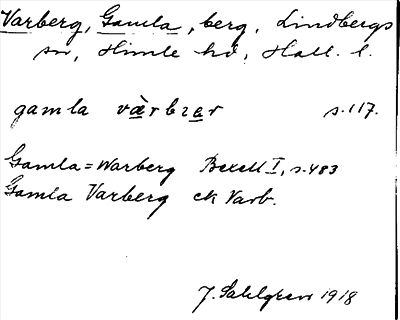 Varberg, Gamla, berg, Lindbergs
sn, Himle hd, Hall. l.
gamla vàrbær s. 117.
Gamla=Warberg Bexell I, s. 483
Gamla Varberg ek Varb.
J. Sahlgren 1918